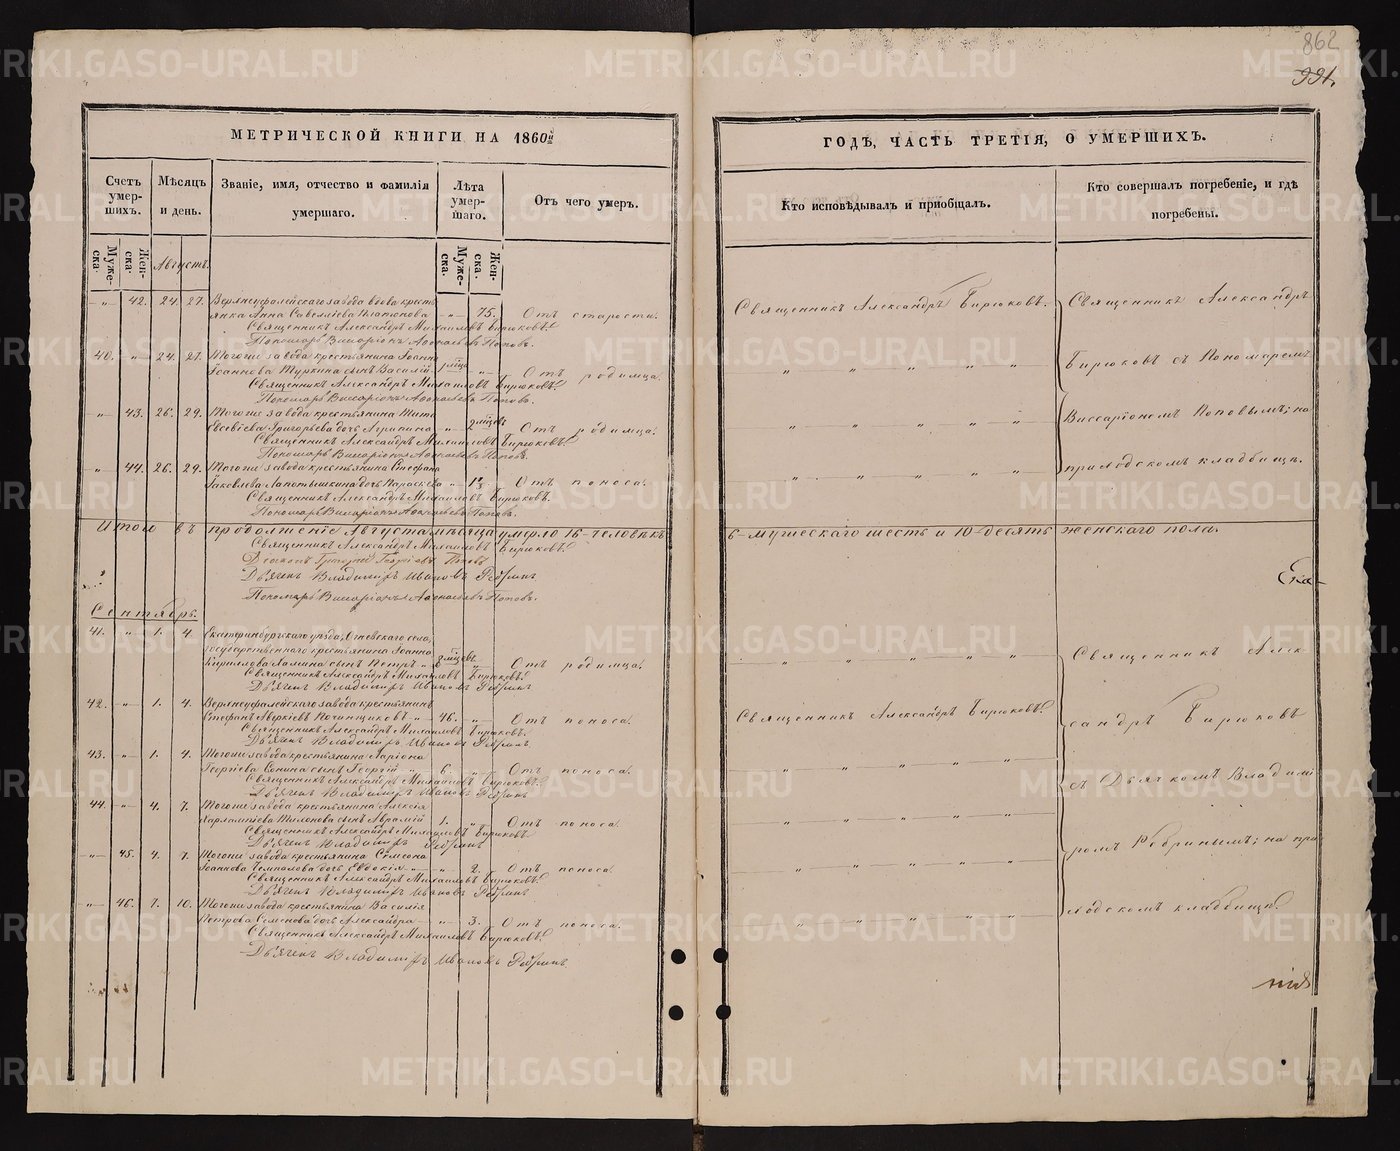 862
991.
МЕТРИЧЕСКОЙ КНИГИ НА 1860й
ГОДЪ, ЧАСТЬ ТРЕТІЯ, О УМЕРШИХЪ.
Счетъ умер-шихъ.
Мѣсяцъ и день.
Званіе, имя, отчество и фамилія умершаго.
Лѣта умер-шаго.
Отъ чего умеръ.
Кто исповѣдывалъ и пріобщалъ.
Кто совершалъ погребеніе, и гдѣ погребены.
Муже-ска.
Жен-ска.
Августъ.
Муже-ска.
Жен-ска.
„ 42. 24. 27. Верхнеуфалейскаго завода вдова кресть
янка Анна Савеліева Платонова „ 75. Отъ старости.
Священникъ Александръ Бирюковъ.
Священникъ Александръ Михаиловъ Бирюковъ.
Пономарь Виссаріонъ Афонасьевъ Поповъ.
40. „ 24. 27. Тогоже завода крестьянина Іоанна
Іоаннова Туркина сынъ Василій „ Отъ родимца.
Священникъ Александръ Михаиловъ Бирюковъ.
Пономарь Виссаріонъ Афонасьевъ Поповъ.
„ 43. 26. 29. Тогоже завода крестьянина Тита
Евсевіева Григорьева дочь Агрипина „ 2 мѣсцевъ Отъ родимца.
Священникъ Александръ Михаиловъ Бирюковъ.
Пономарь Виссаріонъ Афонасьевъ Поповъ.
„ 44. 26. 29. Тогоже завода крестьянина Стефана
Яковлева Лапотышкина дочь Параскева „ Отъ поноса.
Священникъ Александръ Михаиловъ Бирюковъ.
Пономарь Виссаріонъ Афонасьевъ Поповъ.
Священникъ Александръ
Бирюковъ съ Пономаремъ
Виссаріономъ Поповымъ; на
приходскомъ кладбищѣ.
Итого въ продолженіе Августа мѣсяца умерло 16-человѣкъ
6-мужескаго шесть и 10-десять женскаго пола.
Священникъ Александръ Михаиловъ Бирюковъ.
Діаконъ Григорій Георгіевъ Поповъ
Дьячекъ Владимиръ Ивановъ Ребринъ
Пономарь Виссаріонъ Афонасьевъ Поповъ.
Ека-
Сентябрь.
41. „ 1. 4. Екатеринбургскаго уѣзда, Огневскаго села,
государственнаго крестьянина Іоанна
Кирилова сынъ Петръ „ 8 мѣсцевъ „ Отъ родимца.
Священникъ Александръ Михаиловъ Бирюковъ.
Дьячекъ Владимиръ Ивановъ Ребринъ
42. „ 1. 4. Верхнеуфалейскаго завода крестьянинъ
Стефанъ Аверкіевъ Починщиковъ „ 46. „ Отъ поноса.
Священникъ Александръ Бирюковъ.
Священникъ Александръ Михаиловъ Бирюковъ.
Дьячекъ Владимиръ Ивановъ Ребринъ
43. „ 1. 4. Тогоже завода крестьянина Ларіона
Георгіева сынъ Георгій 6. „ Отъ поноса.
Священникъ Александръ Михаиловъ Бирюковъ.
Дьячекъ Владимиръ Ивановъ Ребринъ
44. „ 4. 7. Тогоже завода крестьянина Алексія
Харлампіева сынъ Аврамій 1. „ Отъ поноса.
Священникъ Александръ Михаиловъ Бирюковъ
Дьячекъ Владимиръ Ребринъ
„ 45. 4. 7. Тогоже завода крестьянина Симеона
Іоаннова дочь Евдокія „ 2. Отъ поноса.
Священникъ Александръ Михаиловъ Бирюковъ.
Дьячекъ Владимиръ Ивановъ Ребринъ
„ 46. 7. 10. Тогоже завода крестьянина Василія
Петрова Семенова дочь Александра „ 3. Отъ поноса.
Священникъ Александръ Михаиловъ Бирюковъ.
Дьячекъ Владимиръ Ивановъ Ребринъ
Священникъ Алек
сандръ Бирюковъ
съ Дьячкомъ Владимі
ромъ Ребринымъ; на при
ходскомъ кладбищѣ
METRIKI.GASO-URAL.RU